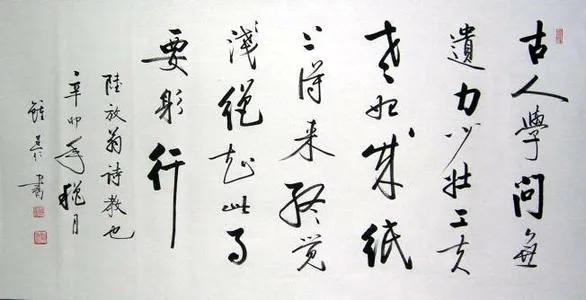 古人學問無
遺力少壯工夫
老始成紙
上得来終覺
淺絕知此事
要躬行
陸放翁詩教也
辛卯年月
書